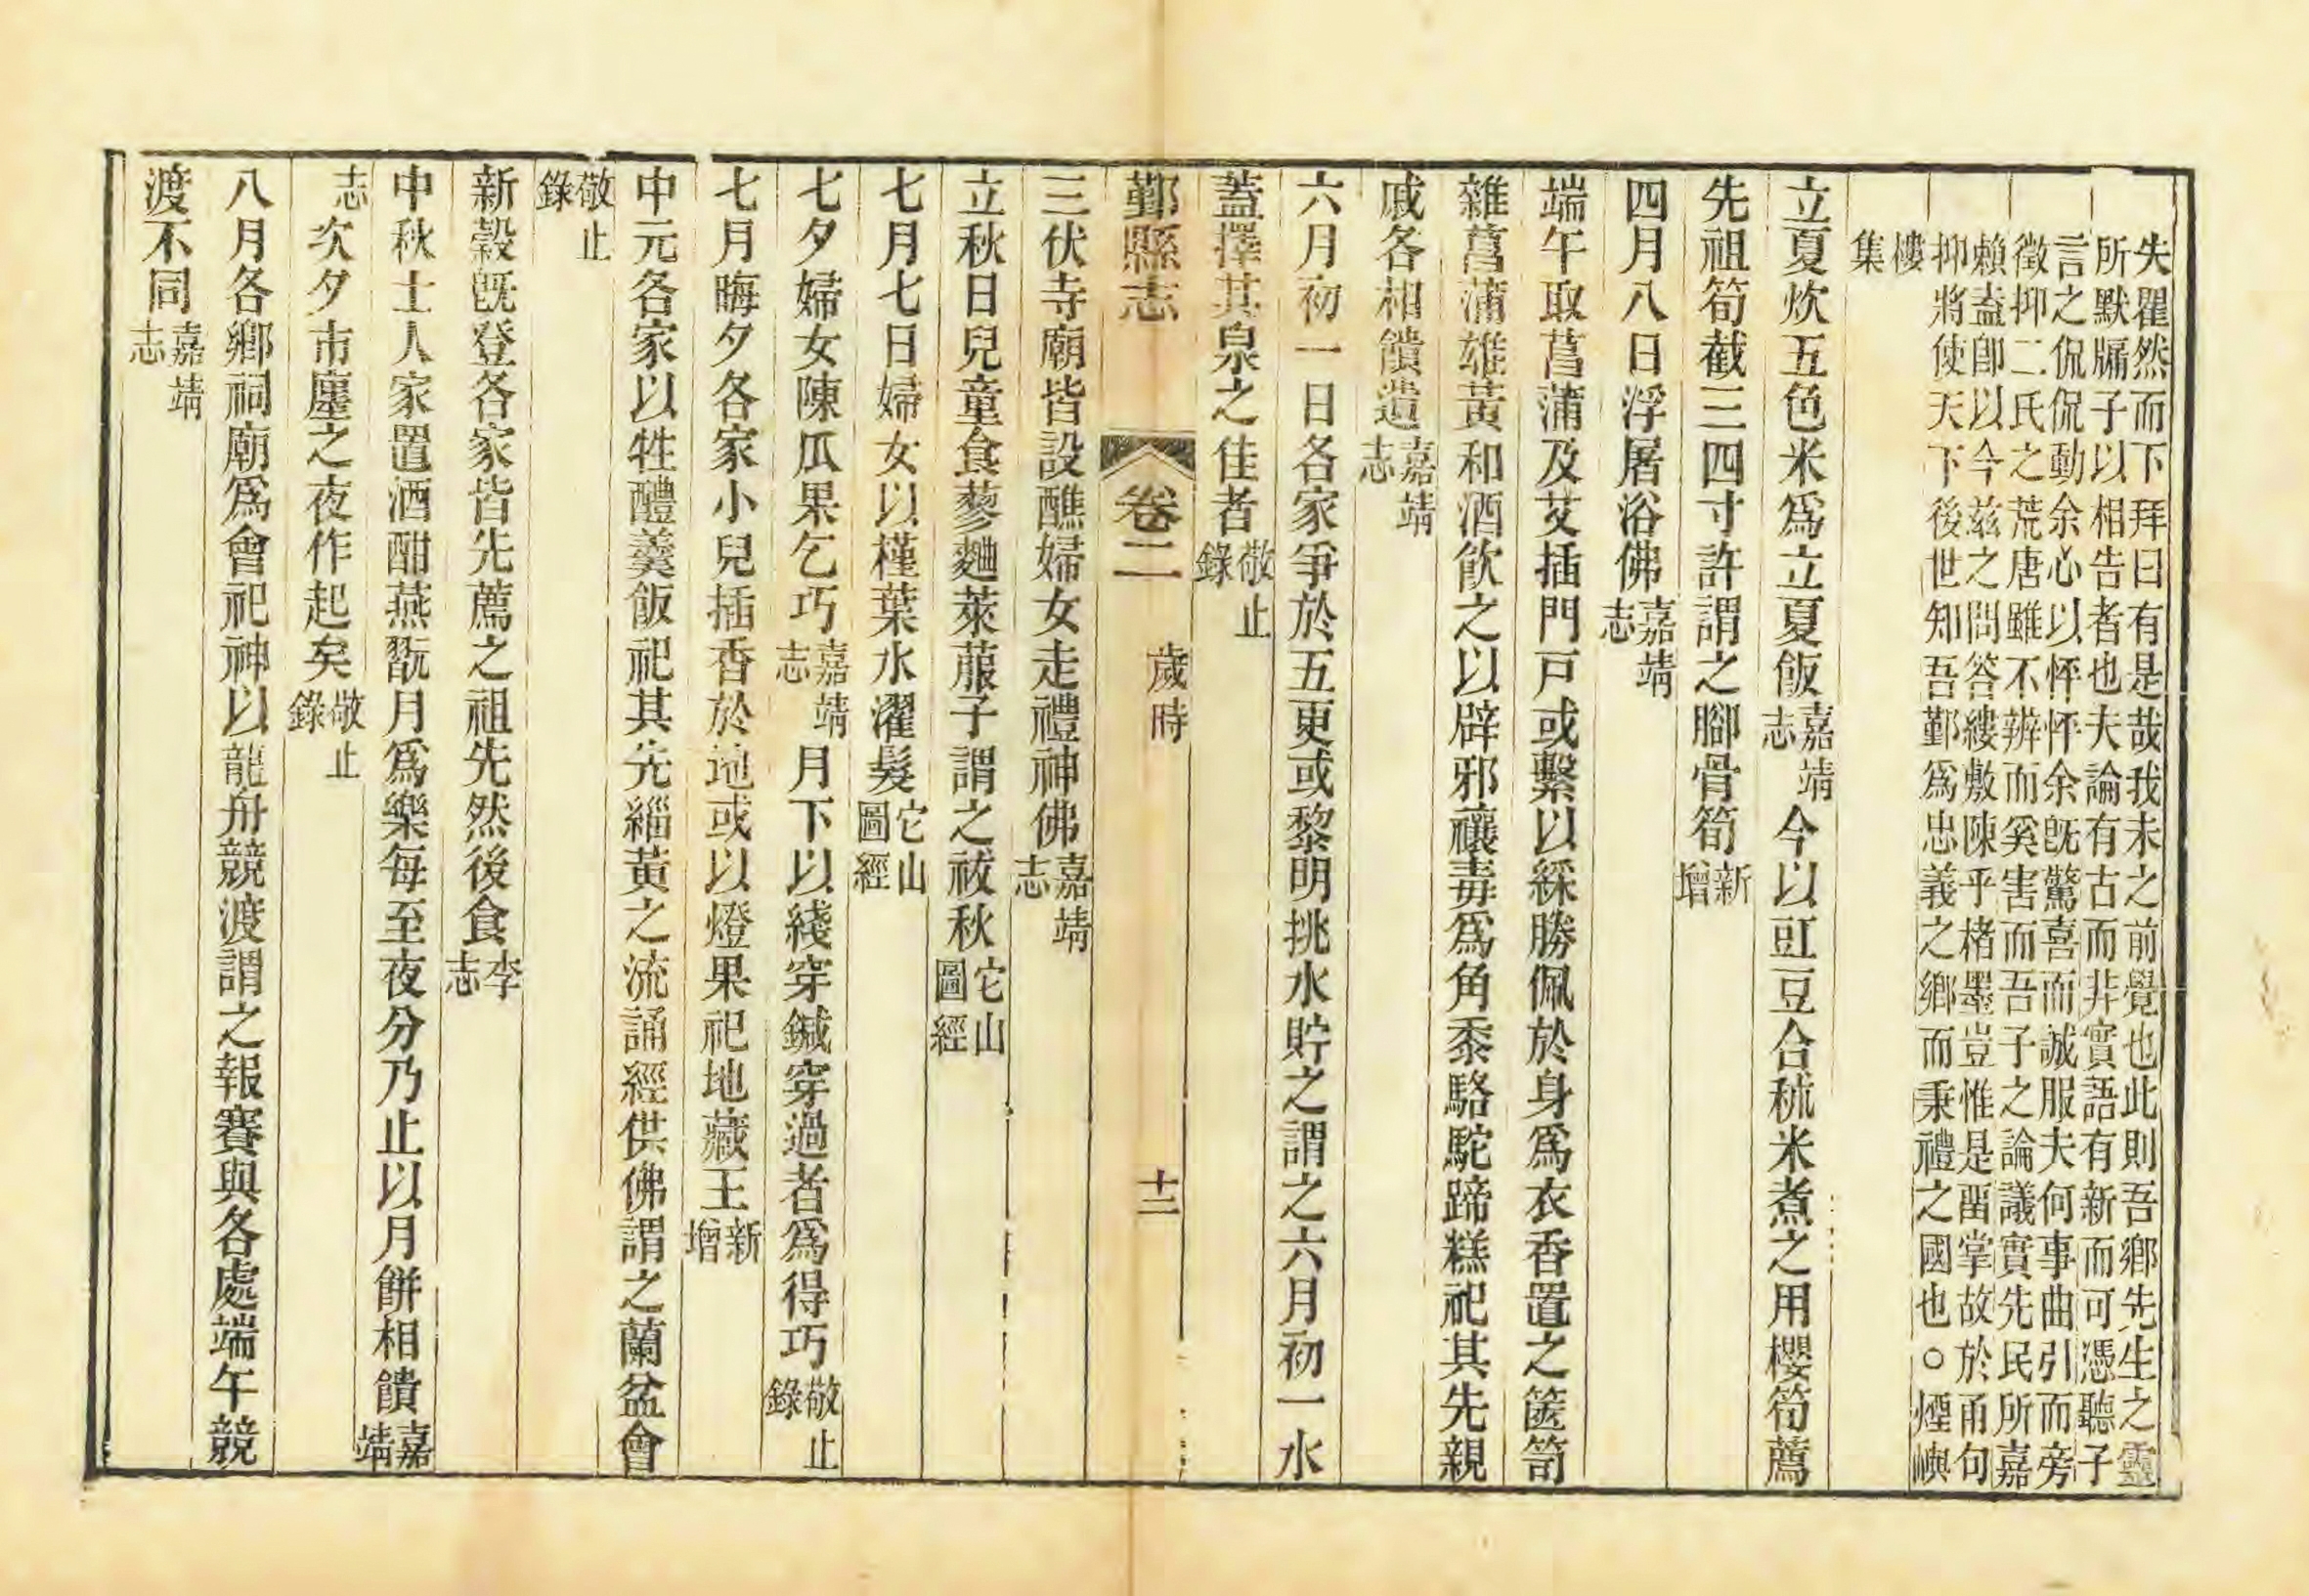 失瞿然而下拜曰有是哉我未之前覺也此則吾鄉先生之靈
所默牖子以相告者也夫論有古而非實語有新而可憑聽子
言之侃侃動余心以怦怦余旣驚喜而誠服夫何事曲引而旁
徵抑二氏之荒唐雖不辨而奚害而吾子之論議實先民所嘉
賴盍卽以今兹之問答縷敷陳乎楮墨豈惟是凿掌故於甬句
抑將使天下後世知吾鄞爲忠義之鄉而秉禮之國也○煙嶼
樓
集
立夏炊五色米爲立夏飯嘉靖志今以豇豆合秫米煮之用櫻筍薦
先祖筍截三四寸許謂之腳骨筍新增
四月八日浮屠浴佛嘉靖志
端午取菖蒲及艾插門戸或繫以綵勝佩於身爲衣香置之篋笥
雜菖蒲雄黃和酒飮之以辟邪禳毒爲角黍駱駝蹄糕祀其先親
戚各相饋遺嘉靖志
六月初一日各家爭於五更或黎明挑水貯之謂之六月初一水
蓋擇其泉之佳者敬止錄
鄞縣志
卷二
歲時
十二
三伏寺廟皆設醮婦女走禮神佛嘉靖志
立秋日兒童食蓼麯萊菔子謂之祓秋它山圖經
七月七日婦女以槿葉水濯髮它山圖經
七夕婦女陳瓜果乞巧嘉靖志月下以綫穿鍼穿過者爲得巧敬止錄
七月晦夕各家小兒插香於地或以燈果祀地藏王新增
中元各家以牲醴羹飯祀其先緇黃之流誦經供佛謂之蘭盆會
敬止錄
新穀旣登各家皆先薦之祖先然後食李志
中秋士人家置酒酣燕翫月爲樂每至夜分乃止以月餅相饋嘉靖
志次夕市廛之夜作起矣敬止錄
八月各鄉祠廟爲會祀神以龍舟競渡謂之報賽與各處端午競
渡不同嘉靖志